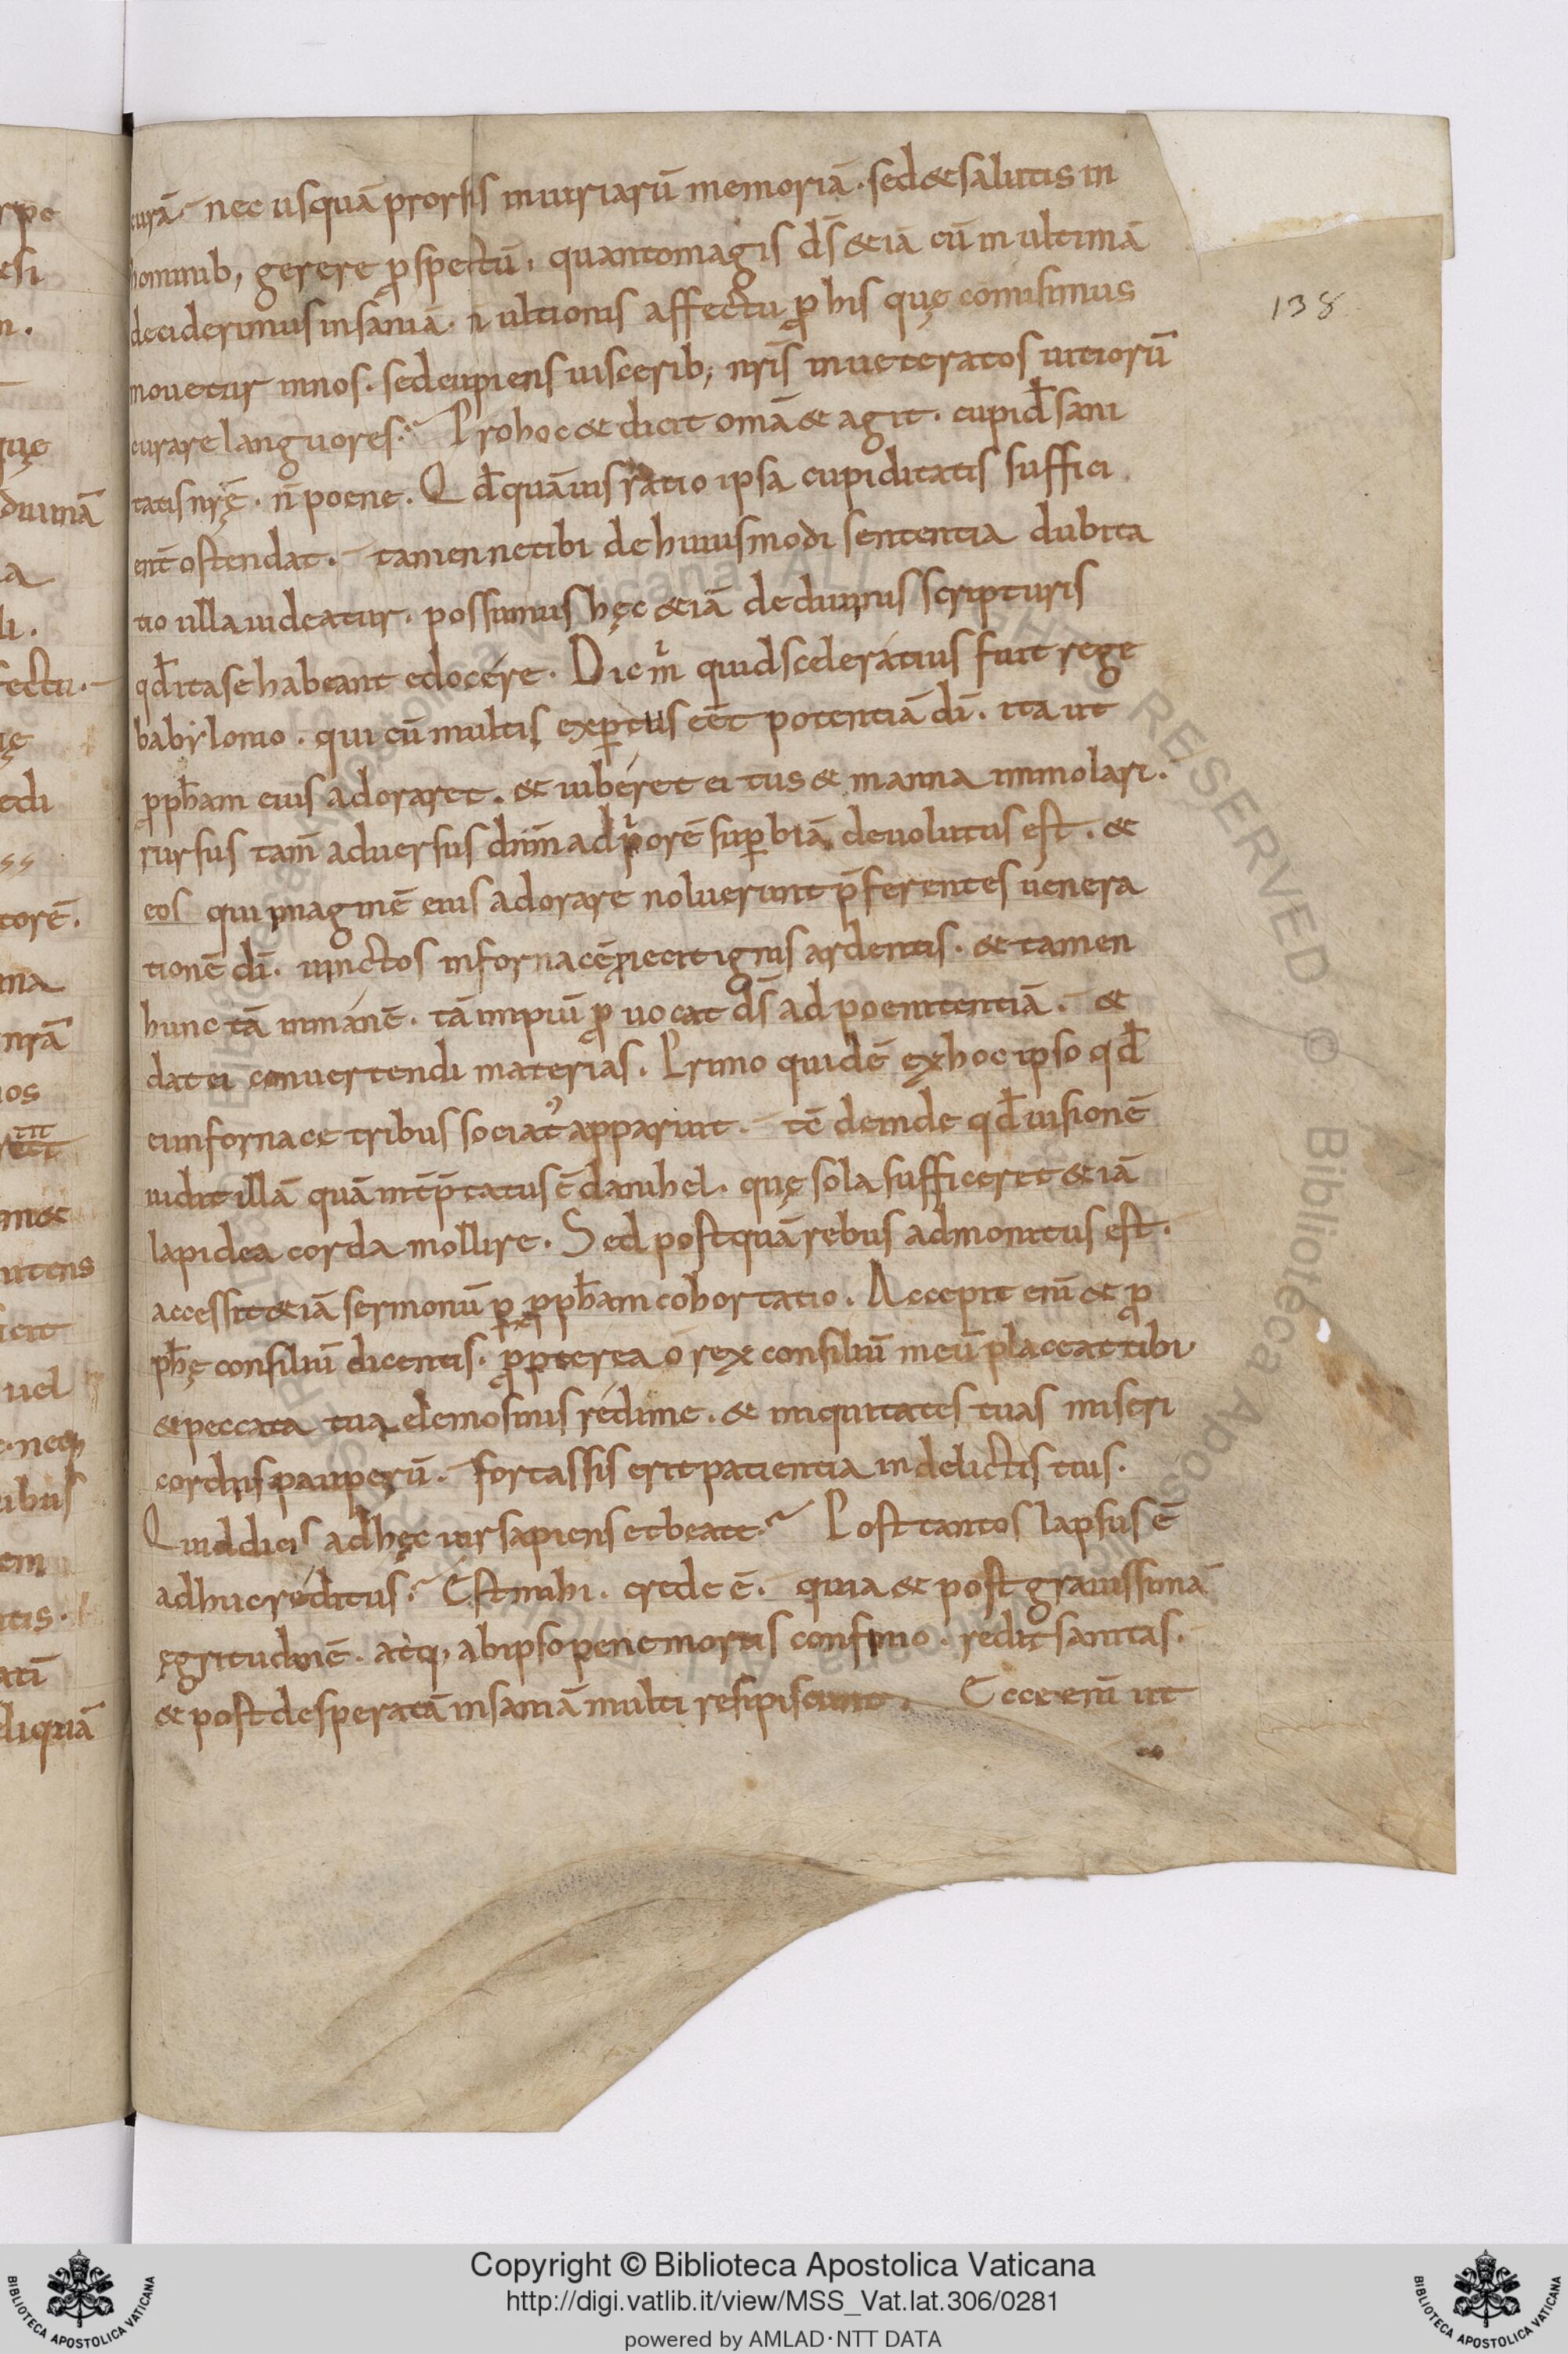 curā. nec usquā prorsus iniuriarū memoriā. sed & salutis in
hominib; gerere ꝓspectū. quantomagis d̄s &iā cū in ultimā
deciderimus insaniā. n̄ ultionis affectu ꝓ his quę comisimus
mouetur innos. sed cupiens uiscerib; nr̄is inueteratos uitiorū
curare languores. Prohoc & dicit omā & agit. cupid̄ sani
tatis nr̄ę. n̄ poene. Qd̄ quāuis ratio ipsa cupiditatis suffici
ent̄ ostendat. tamen ne tibi de huiusmodi sententia dubita
tio ulla uideatur. possumus hęc &iā de diuinis scripturis
qd̄ ita se habeant edocere. Dic m̄ quid sceleratius fuit rege
babylonio. qui cū multis exꝑtus eēt potentiā dī. ita ut
ꝓph̄am eius adoraret. & iuberet ei tus & manna immolari.
rursus tam̄ aduersus dn̄m ad priorē suꝑbiā deuolutus est. &
eos qui imaginē eius adorare noluerunt p̄ferentes uenera
tionē dī. uinctos in fornacē ꝓiecit ignis ardentis. & tamen
hunc tā inmanē. tā impiū ꝓuocat d̄s ad poenitentiā. &
dat ei conuertendi materias. Primo quidē ex hoc ipso qd̄
ei in fornace tribus sociat' apparuit. tē deinde qd̄ uisionē
uidit illā quā int̄p̄tatus ē danihel. quę sola sufficeret &iā
lapidea corda mollire. Sed postquā rebus admonitus est.
accessit &iā sermonū ꝑ ꝓph̄am cohortatio. Accepit enī & ꝓ
ph̄ę consiliū dicentis. ꝓpterea o rex consiliū meū placeat tibi
& peccata tua elemosinis redime. & iniquitates tuas miseri
cordiis pauperū. fortassis erit patientia in delictis tuis.
Quid dicis ad hęc uir sapiens et beate. Post tantos lapsus ē
adhuc reditus. Est mihi. crede ē. quia & post grauissimā
ęgritudinē. atq; ab ipso pene mortis confinio. redit sanitas.
& post desperatā insaniā multi resipiscunt. Ecce enī ut
138
Copyright © Biblioteca Apostolica Vaticana
http://digi.vatlib.it/view/MSS_Vat.lat.306/0281
powered by AMLAD·NTT DATA